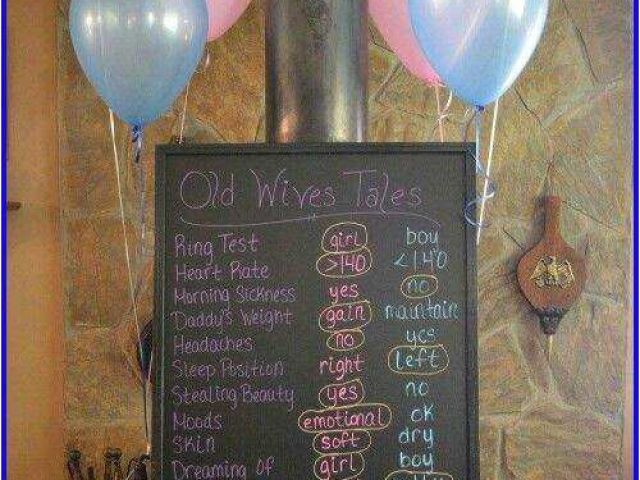 Old Wives Tales
Ring Test girl boy
Heart Rate >140 <140
Morning Sickness yes no
Daddy's Weight gain maintain
Headaches no yes
Sleep Position right left
Stealing Beauty yes no
Moods emotional ok
Skin soft dry
Dreaming of girl boy